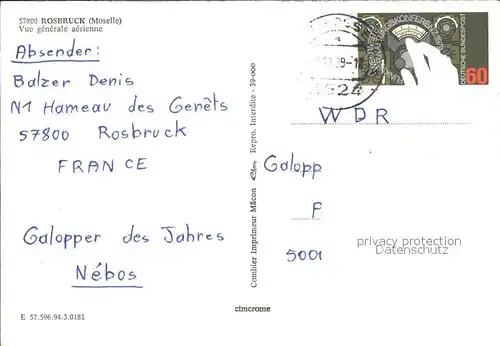 57800 ROSBRUCK (Moselle)
Vue générale aérienne
Absender:
Balzer Denis
N1 Hameau des Genêts
57800 Rosbruck
FRANCE
Galopper des Jahres
Nébos
E 57.596.94.3.0181
Combier Imprimeur Mâcon Repro. Interdite - 39-000
cimcrome
DEUTSCHE BUNDESPOST
60
WDR
Galopp
P
5001
privacy protection
Datenschutz